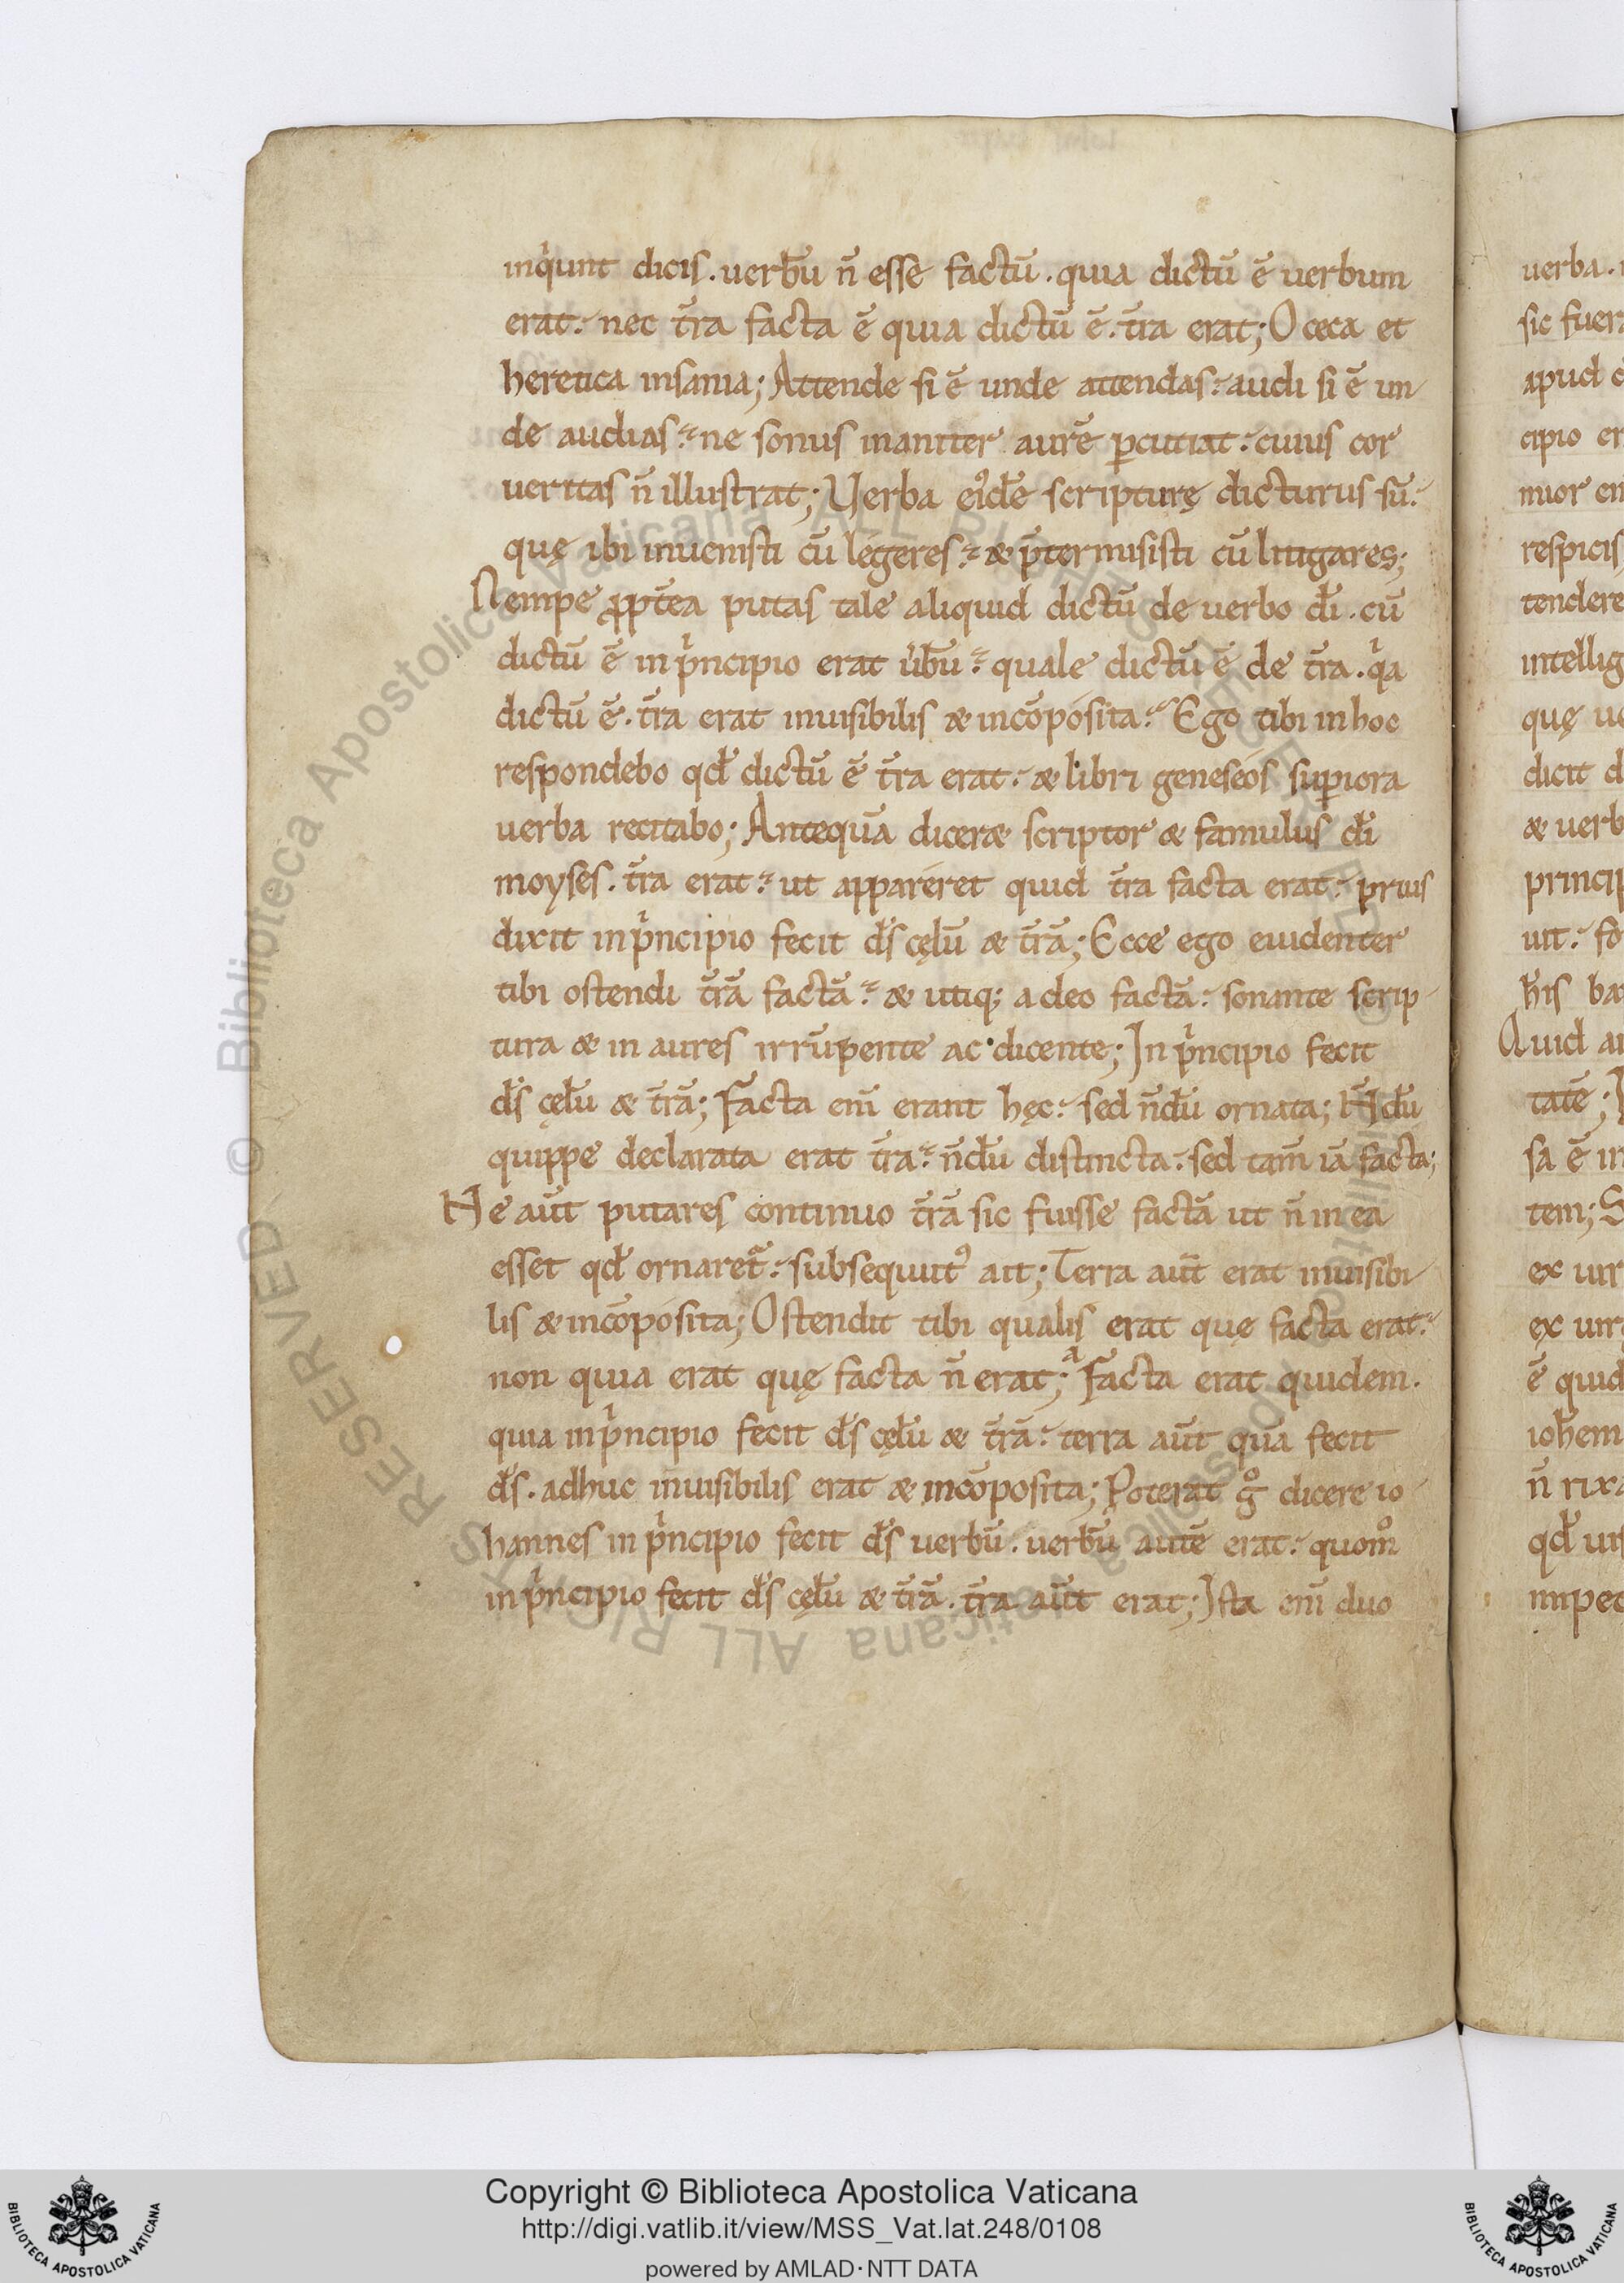 inq̍unt dicis . uerbū n̄ esse factū . quia dictū ē uerbum
erat. nec t̄ra facta ē quia dictū ē . t̄ra erat; O ceca et
heretica insania; Attende si ē unde attendas. audi si ē un
de audias. ne sonus inaniter aurē ꝑcutiat. cuius cor
ueritas n̄ illustrat; Verba ei'dē scripturę dicturus sū.
quę ibi inuenisti cū legeres. & p̄termisisti cū litigares;
Nempe ꝓpt̄ea putas tale aliquid dictū de uerbo dī . cū
dictū ē in p̍ncipio erat u̍bū. quale dictū ē de t̄ra . q̍a
dictū ē . t̄ra erat inuisibilis & incōposita. Ego tibi in hoc
respondebo qđ dictū ē t̄ra erat. & libri geneseos suꝑiora
uerba recitabo; Antequā dicer& scriptor & famulus dī
moyses . t̄ra erat. ut appareret quid t̄ra facta erat. prius
dixit in p̍ncipio fecit ds̄ cęlū & t̄rā; Ecce ego euidenter
tibi ostendi t̄rā factā. & utiq; a deo factā. sonante scrip
tura & in aures irrūpente ac dicente; In p̍ncipio fecit
ds̄ cęlū & t̄rā; Facta eni̅ erant hęc. sed n̄dū ornata; N̄dū
quippe declarata erat t̄ra. n̄dū distincta. sed tam̄ iā facta;
Ne aūt putares continuo t̄rā sic fuisse factā ut n̄ in ea
esset qđ ornaret᷑. subsequut' ait; Terra aūt erat inuisibi
lis & incōposita; Ostendit tibi qualis erat quę facta erat.
non quia erat quę facta n̄ erat; Facta erat quidem .
quia in p̍ncipio fecit ds̄ cęlū & t̄rā. terra aūt quā fecit
ds̄ . adhuc inuisibilis erat & incōposita; Poterat gͦ dicere io
hannes in p̍ncipio fecit ds̄ uerbū . uerbū autē erat. quom̊
in p̍ncipio fecit ds̄ cęlū & t̄rā . t̄ra aūt erat; Ista eni̅ duo
uerba .
sic fuer
apud
cipio er
respicis
tendere
intellig
dicit d
& uerb
princip
uit. fo
Quid
tatē;
sa ē in
tem; S
ex uir
ex uirg
ē quid
iohem
n̄ rixa
qđ uis
Copyright © Biblioteca Apostolica Vaticana
http://digi.vatlib.it/view/MSS_Vat.lat.248/0108
powered by AMLAD·NTT DATA
BIBLIOTECA APOSTOLICA VATICANA
BIBLIOTECA APOSTOLICA VATICANA